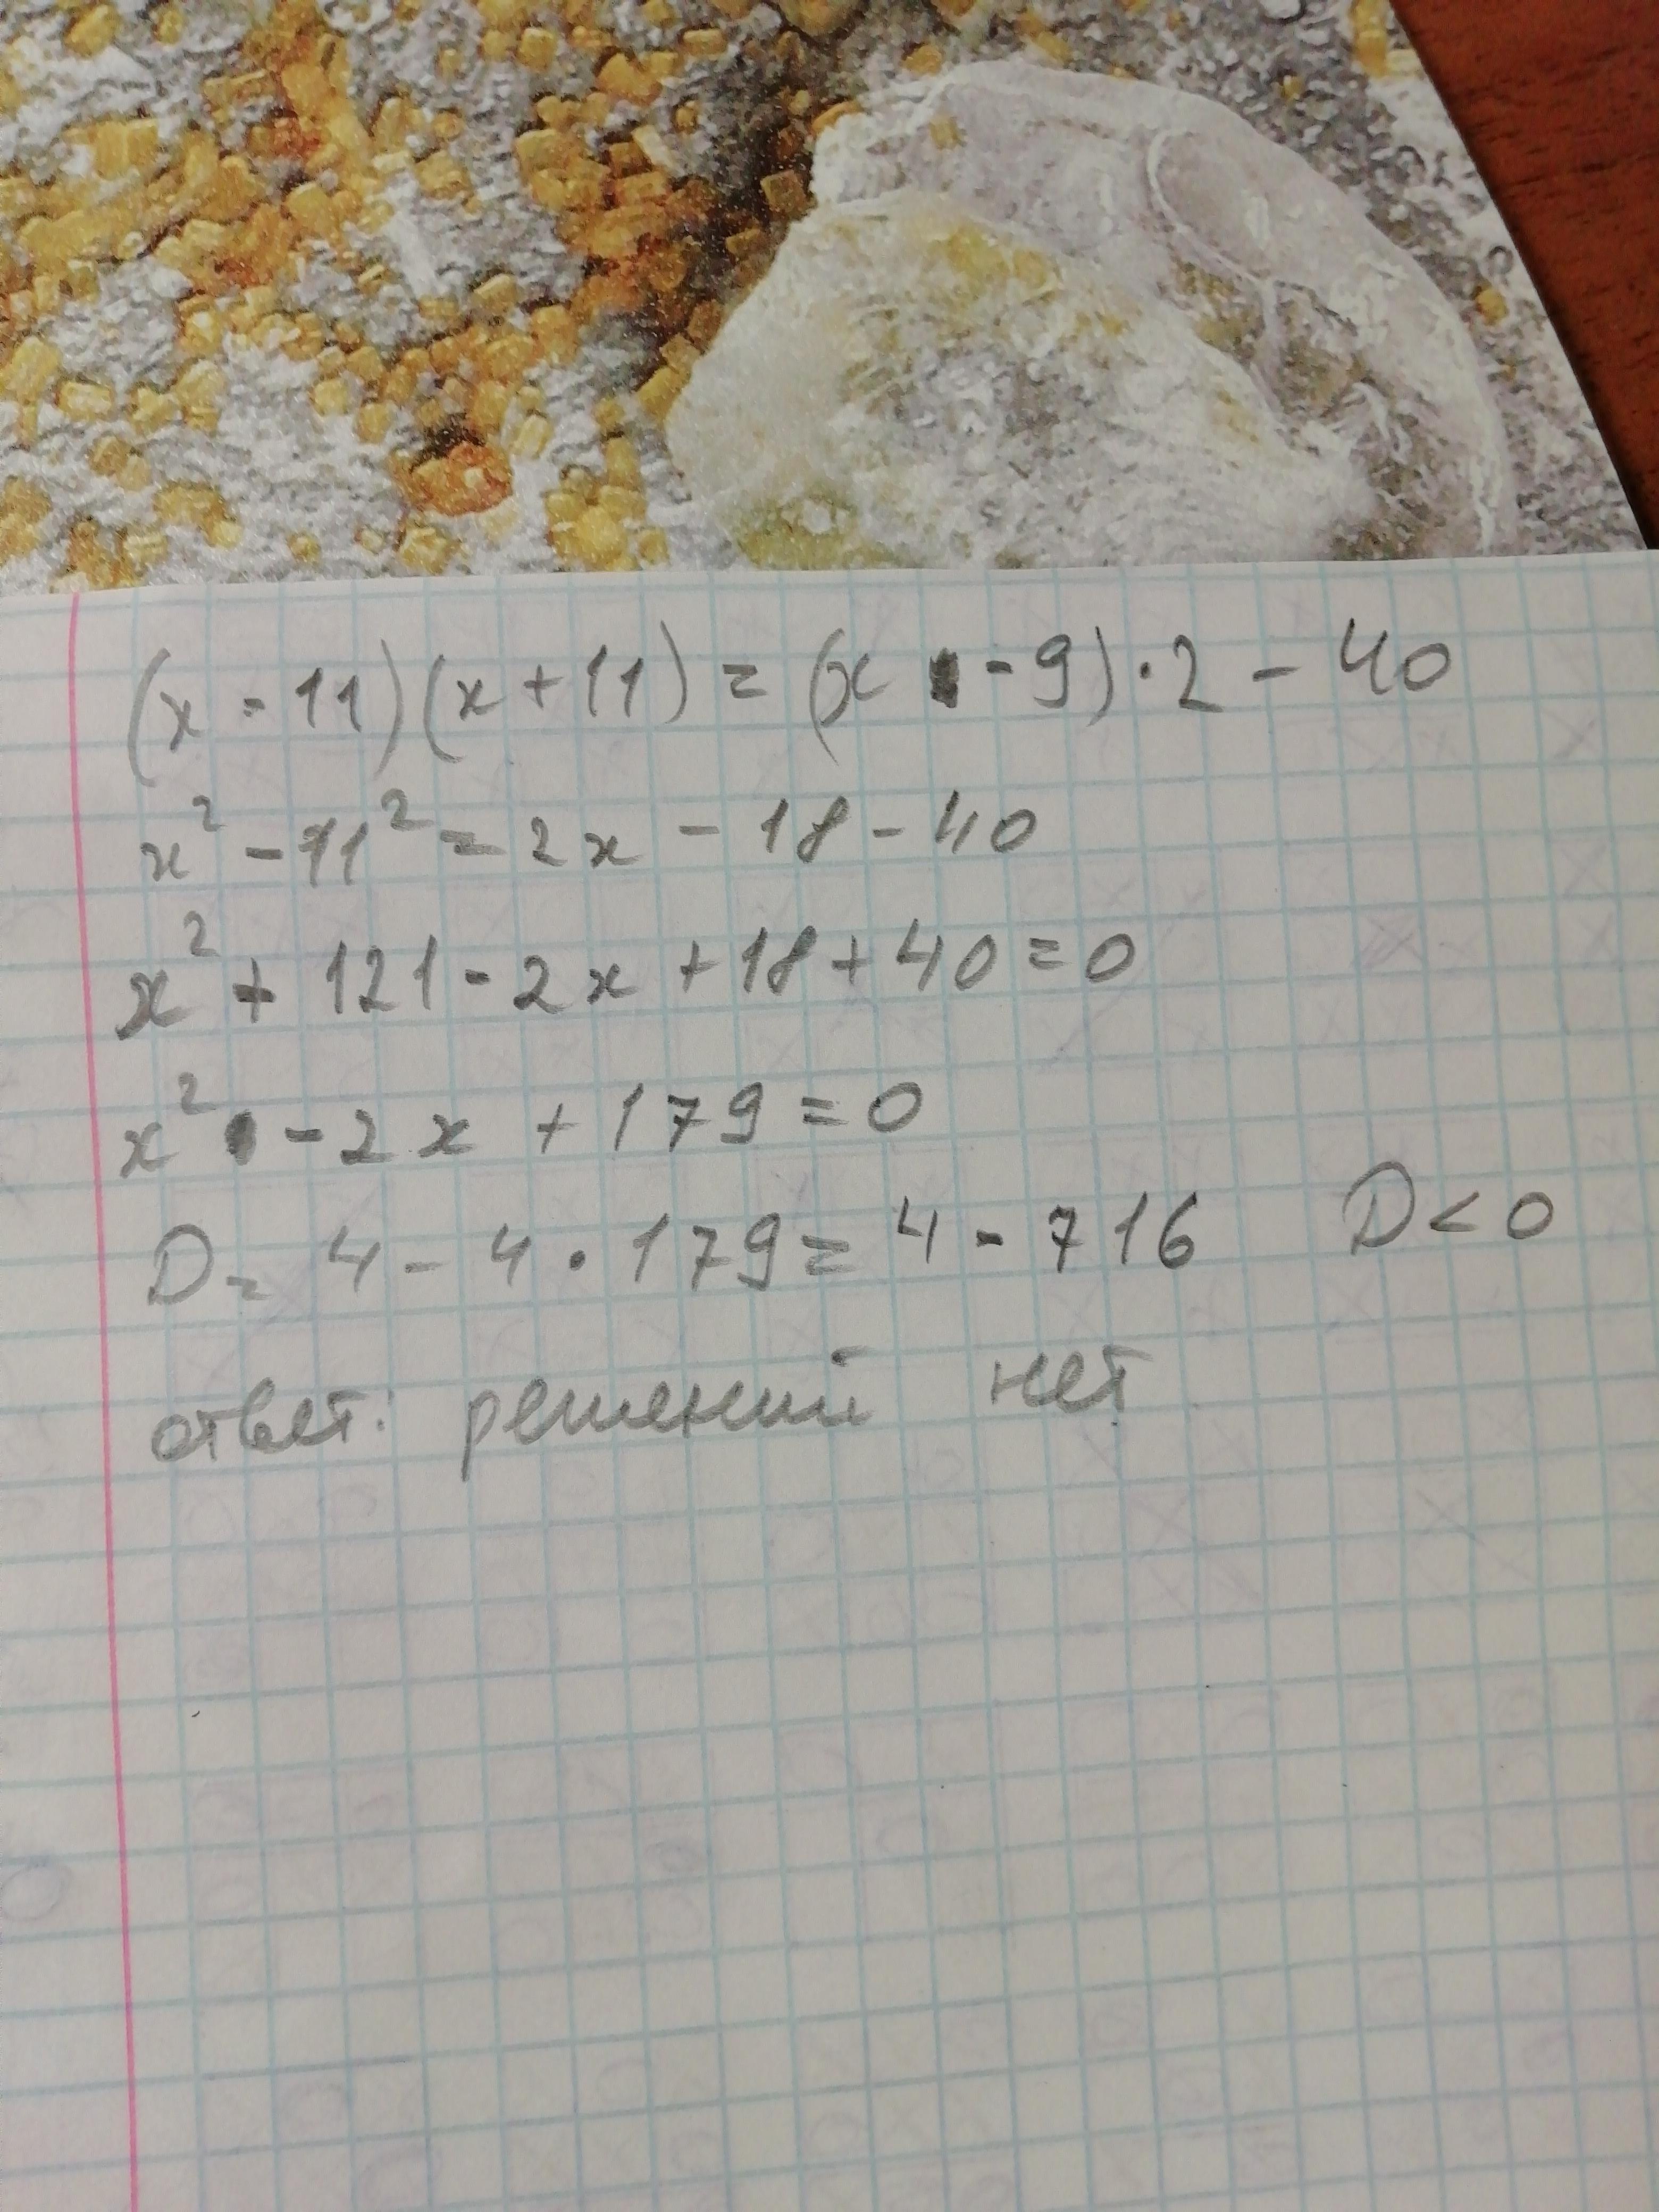 (x - 11)(x + 11) = (x - 9) · 2 - 40
x² - 11² = 2x - 18 - 40
x² + 121 - 2x + 18 + 40 = 0
x² - 2x + 179 = 0
D = 4 - 4 · 179 = 4 - 716 D < 0
ответ: решений нет